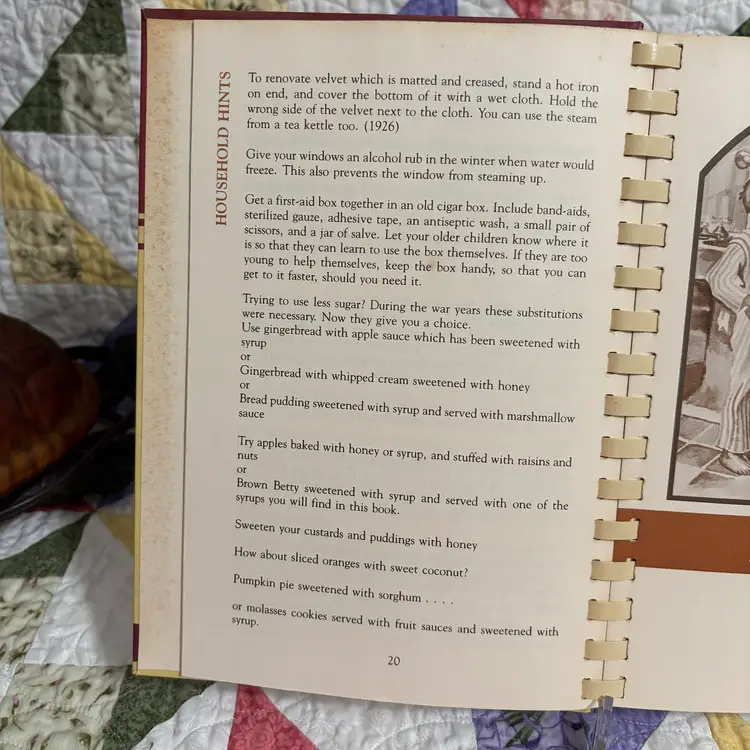 HOUSEHOLD HINTS
To renovate velvet which is matted and creased, stand a hot iron
on end, and cover the bottom of it with a wet cloth. Hold the
wrong side of the velvet next to the cloth. You can use the steam
from a tea kettle too. (1926)
Give your windows an alcohol rub in the winter when water would
freeze. This also prevents the window from steaming up.
Get a first-aid box together in an old cigar box. Include band-aids,
sterilized gauze, adhesive tape, an antiseptic wash, a small pair of
scissors, and a jar of salve. Let your older children know where it
is so that they can learn to use the box themselves. If they are too
young to help themselves, keep the box handy, so that you can
get to it faster, should you need it.
Trying to use less sugar? During the war years these substitutions
were necessary. Now they give you a choice.
Use gingerbread with apple sauce which has been sweetened with
syrup
or
Gingerbread with whipped cream sweetened with honey
or
Bread pudding sweetened with syrup and served with marshmallow
sauce
Try apples baked with honey or syrup, and stuffed with raisins and
nuts
or
Brown Betty sweetened with syrup and served with one of the
syrups you will find in this book.
Sweeten your custards and puddings with honey
How about sliced oranges with sweet coconut?
Pumpkin pie sweetened with sorghum . . . .
or molasses cookies served with fruit sauces and sweetened with
syrup.
20